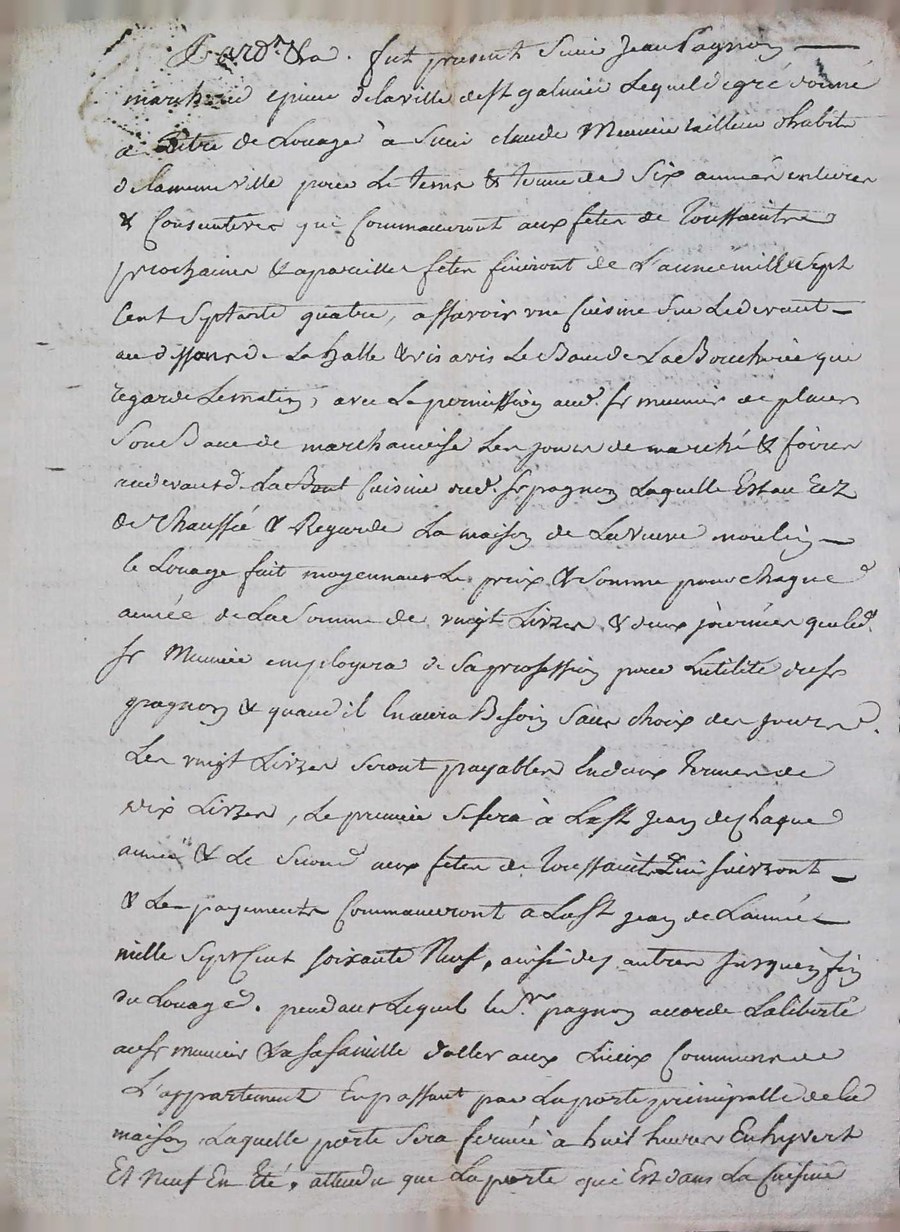 Pardt. &a. fut present Sieur Jean Pagnon
marchand epicier de la ville de St galmier Lequel de gré a donné
a titre de Louage à Sieur claude Meunier tailleur d'habits
de la meme ville pour Le tems & terme de Six années entieres
& Consecutives qui Commanceront aux fetes de Toussaints
prochaines & a pareilles fetes finiront de L'année mille Sept
Cent Septante quatre, assavoir une Cuisine Sur Le devant
au dessous de La halle & vis avis Le Banc de La Boucherie qui
regarde Le matin, avec La permission aud. Sr meunier de placer
Son Banc de marchandise Les jours de marché & foires
au devant de La Cuisine dud. Sr pagnon Laquelle Est au Rez
de Chaussée & Regarde La maison de La veuve moulin
le Louage fait moyennant Le prix & Somme pour chaque
année de La Somme de vingt Livres & deux journées que led.
Sr Meunier employera de Sa profession pour L'utilité du Sr
pagnon & quand il En aura Besoin Sans choix des jours.
Les vingt Livres Seront payables En deux termes de
dix Livres, Le premier Se fera à La St Jean de Chaque
année & Le Second aux fetes de Toussaints qui Suivront
& Les payements Commanceront a La St Jean de L'année
mille Sept Cent Soixante Neuf, ainsi des autres Jusquen fin
du Louage. pendant Lequel led. Sr pagnon accorde La liberté
au Sr meunier & a Sa famille d'aller aux Lieux Communs de
L'appartement En passant par La porte principalle de la
maison Laquelle porte Sera fermée a huit heures En hyvert
Et Neuf En Eté, attendu que La porte qui Est dans La Cuisine